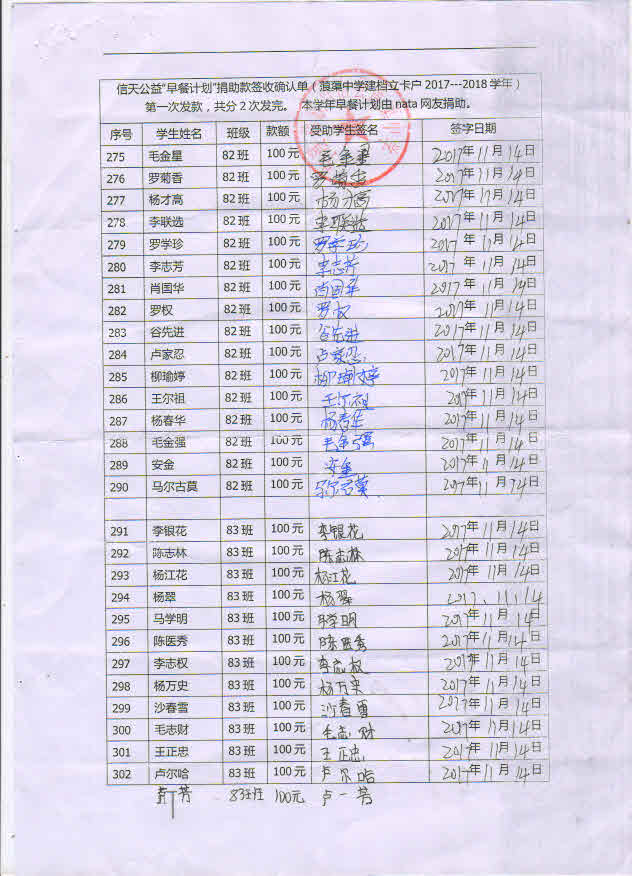 信天公益“早餐计划”捐助款签收确认单（蒗蕖中学建档立卡户 2017---2018 学年）
第一次发款，共分 2 次发完。 本学年早餐计划由 nata 网友捐助。
序号 学生姓名 班级 款额 受助学生签名 签字日期
275 毛金星 82 班 100 元 毛金星 2017年 11月 14日
276 罗菊香 82 班 100 元 罗菊香 2017年 11月 14日
277 杨才高 82 班 100 元 杨才高 2017年 11月 14日
278 李联选 82 班 100 元 李联选 2017年 11月 14日
279 罗学珍 82 班 100 元 罗学珍 2017年 11月 14日
280 李志芳 82 班 100 元 李志芳 2017年 11月 14日
281 肖国华 82 班 100 元 肖国华 2017年 11月 14日
282 罗权 82 班 100 元 罗权 2017年 11月 14日
283 谷先进 82 班 100 元 谷先进 2017年 11月 14日
284 卢家忍 82 班 100 元 卢家忍 2017年 11月 14日
285 柳瑜婷 82 班 100 元 柳瑜婷 2017年 11月 14日
286 王尔祖 82 班 100 元 王尔祖 2017年 11月 14日
287 杨春华 82 班 100 元 杨春华 2017年 11月 14日
288 毛金强 82 班 100 元 毛金强 2017年 11月 14日
289 安金 82 班 100 元 安金 2017年 11月 14日
290 马尔古莫 82 班 100 元 马尔古莫 2017年 11月 14日
291 李银花 83 班 100 元 李银花 2017年 11月 14日
292 陈志林 83 班 100 元 陈志林 2017年 11月 14日
293 杨江花 83 班 100 元 杨江花 2017年 11月 14日
294 杨翠 83 班 100 元 杨翠 2017、11、14
295 马学明 83 班 100 元 马学明 2017年 11月 14日
296 陈医秀 83 班 100 元 陈医秀 2017年 11月 14日
297 李志权 83 班 100 元 李志权 2017年 11月 14日
298 杨万史 83 班 100 元 杨万史 2017年 11月 14日
299 沙春雪 83 班 100 元 沙春雪 2017年 11月 14日
300 毛志财 83 班 100 元 毛志财 2017年 11月 14日
301 王正忠 83 班 100 元 王正忠 2017年 11月 14日
302 卢尔哈 83 班 100 元 卢尔哈 2017年 11月 14日
芳 83班班 100元 卢一芳